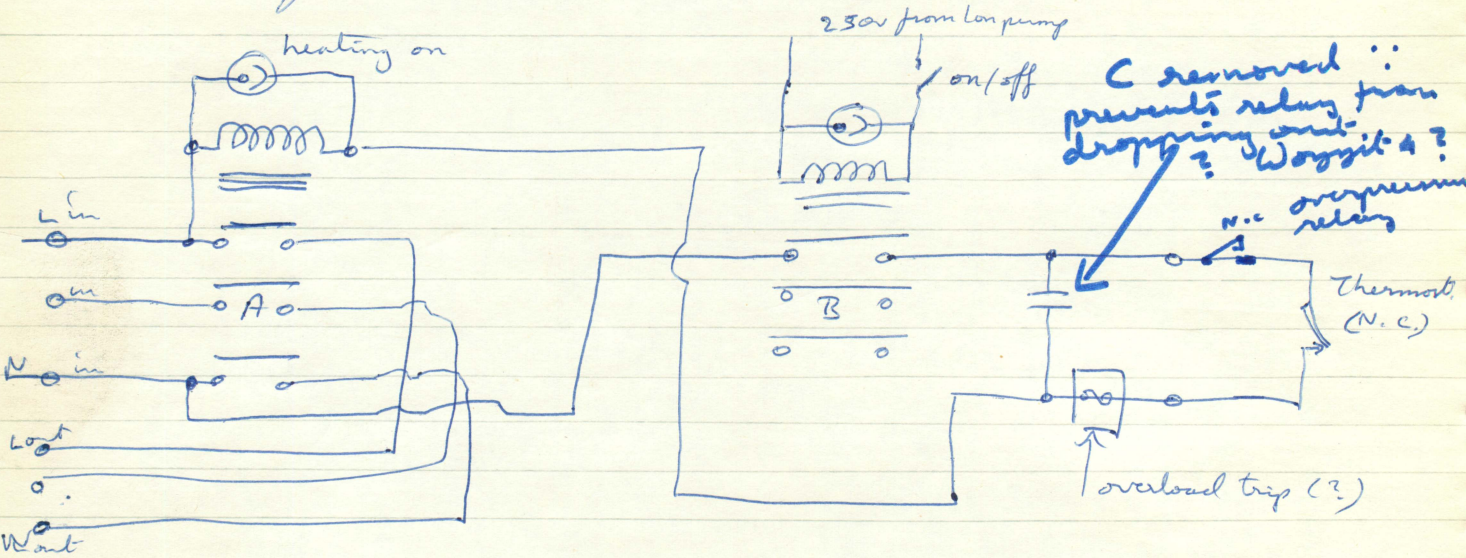 heating on
230v from Lon pump
on/off
C removed ∵
prevents relay from
dropping out
? Wozzit 4 ?
N.C overpressure
relay
L in
in
A
N in
B
Thermost.
(N.C.)
L out
N out
overload trip (?)